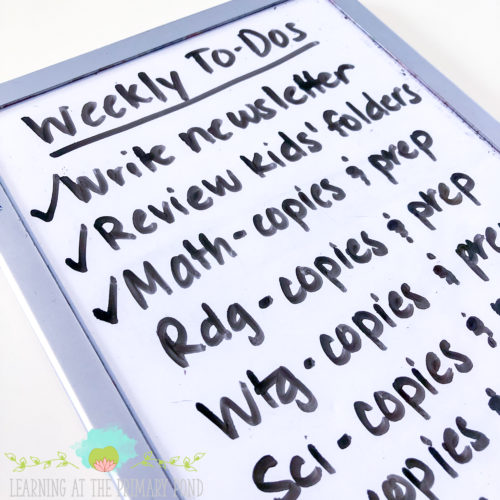 Weekly To-Dos
✓Write newsletter
✓Review kids' folders
✓Math-copies & prep
Rdg-copies & prep
Wtg-copies & prep
Sci-copies &
copies
LEARNING AT THE PRIMARY POND